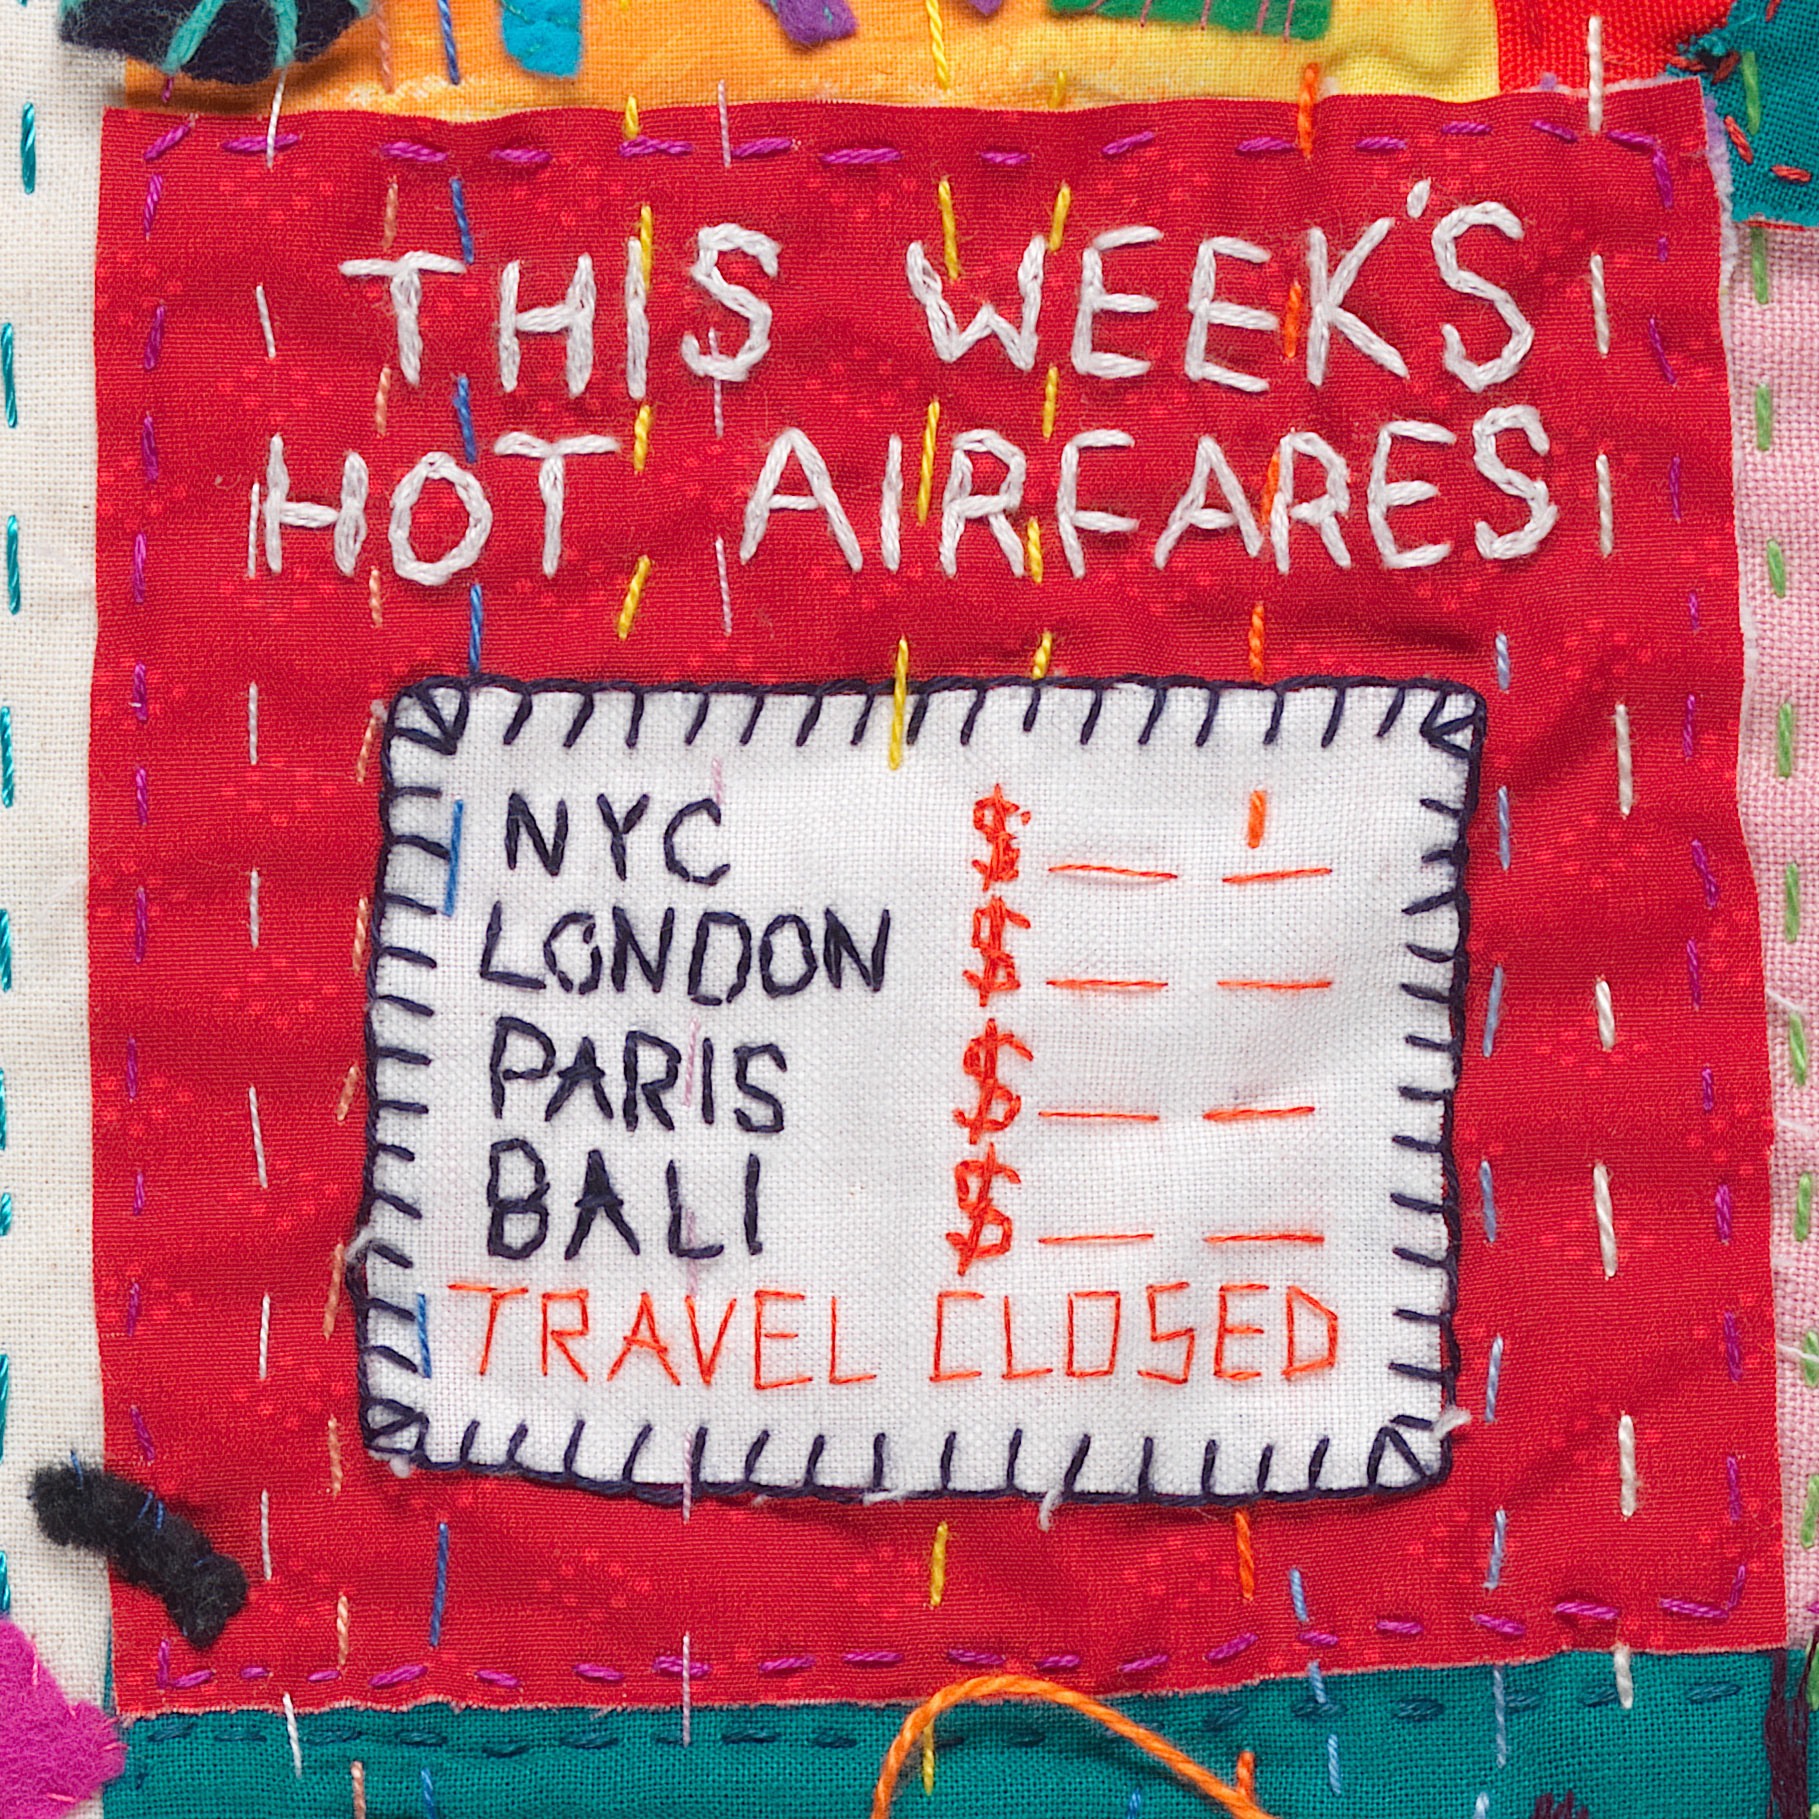 THIS WEEK'S
HOT AIRFARES
NYC $ — —
LONDON $ — —
PARIS $ — —
BALI $ — —
TRAVEL CLOSED